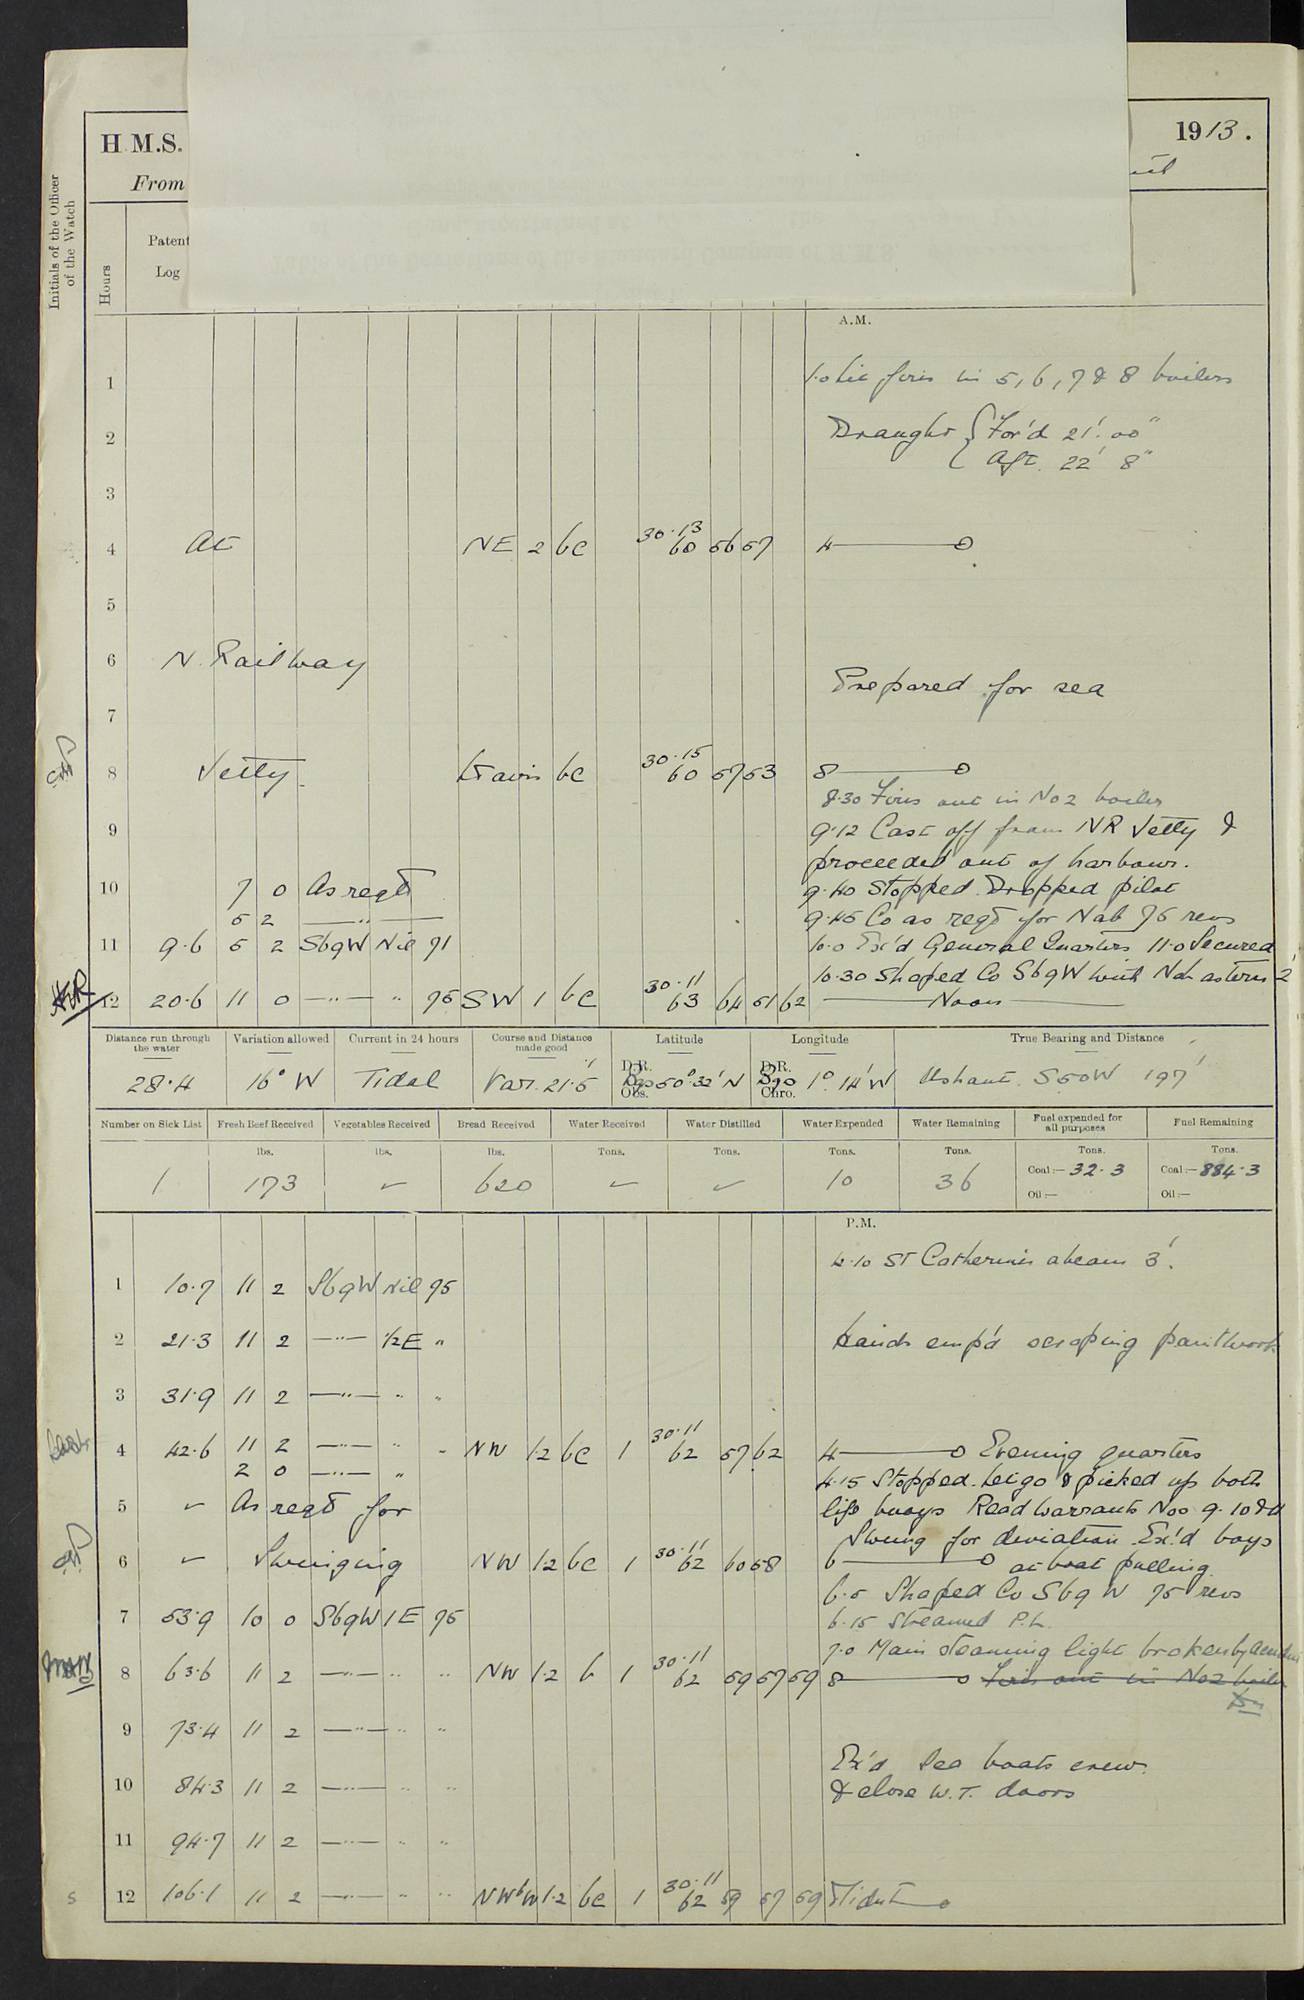 H.M.S.
1913.
From
Initials of the Officer
of the Watch
Hours
Patent
Log
A.M.
1
1.0 Lit fires in 5, 6, 7 & 8 boilers
2
Draught { For'd 21'.00"
Aft. 22' 8"
3
4 At NE 2 bc 30.13 60 56 57 4
5
6 N. Railway
Prepared for sea
7
8 Jetty. bc 30.15 60 57 53 8
8.30 Fires out in No 2 boiler
9
9.12 Cast off from NR Jetty &
proceeded out of harbour.
10 7 0 As reqd
9.40 Stopped. Dropped pilot
5 2 —〃—
9.45 Co as reqd for Nab 75 revs
11 9.6 5 2 SbyW Nil 71
10.0 Ex'd General Quarters 11.0 Secured
10.30 Shaped Co SbyW with Nab astern 2'
12 20.6 11 0 —〃— 〃 75 SW 1 bc 30.11 63 64 51 62 Noon
Distance run through
the water
Variation allowed
Current in 24 hours
Course and Distance
made good
Latitude
Longitude
True Bearing and Distance
28.4 16° W Tidal Var. 21.5' D.R. Obs. 50° 32' N D.R. Chro. 1° 14' W Ushant. S50W 197'
Number on Sick List
Fresh Beef Received
Vegetables Received
Bread Received
Water Received
Water Distilled
Water Expended
Water Remaining
Fuel expended for
all purposes
Fuel Remaining
lbs. lbs. lbs. Tons. Tons. Tons. Tons. Tons. Tons.
1 173 ✓ 620 ✓ ✓ 10 36 Coal:— 32.3 Coal:— 884.3
Oil:— Oil:—
P.M.
St Catherines abeam 3'.
1 10.7 11 2 SbyW Nil 75
2 21.3 11 2 —〃— 1/2E 〃 Hands emp'd scraping paintwork
3 31.9 11 2 —〃— 〃 〃
4 42.6 11 2 —〃— 〃 〃 NW 1.2 bc 1 30.11 62 57 62 4 Evening quarters
2 0 —〃— 〃
4.15 Stopped. Let go & picked up both
5 ✓ As reqd for
life buoys Read Warrants Nos 9. 10 &
Swung for deviation. Ex'd boys
6 ✓ Swinging NW 1.2 bc 1 30.11 62 60 58 6 at boat pulling.
6.5 Shaped Co SbyW 75 revs
7 53.9 10 0 SbyW 1E 75
6.15 Streamed P.L.
7.0 Main steaming light broken by
8 63.6 11 2 —〃— 〃 〃 NW 1.2 b 1 30.11 62 59 57 59 8 Fires out in No 2 boiler
9 73.4 11 2 —〃— 〃 〃
Ex'd Sea boats crew
10 84.3 11 2 —〃— 〃 〃
& close W.T. doors
11 94.7 11 2 —〃— 〃 〃
12 106.1 11 2 —〃— 〃 〃 NWbW 1.2 bc 1 30.11 62 59 57 59 Midnt